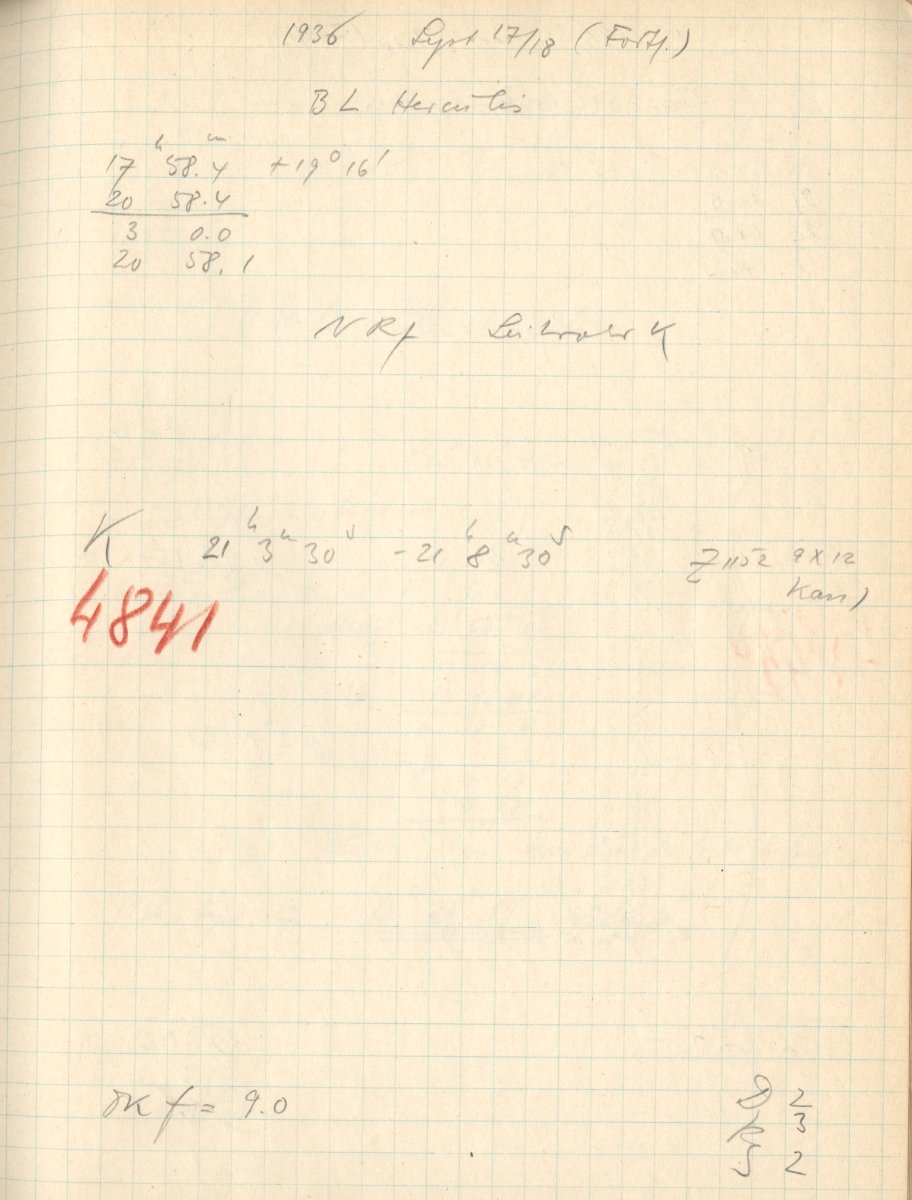 1936 Sept 17/18 (Forts.)
BL Herculis
17ʰ 58.4ᵐ +19° 16'
20 58.4
3 0.0
20 58.1
NRf Leitrohr K
K 21ʰ 3ᵐ 30ˢ - 21ʰ 8ᵐ 30ˢ Z 1152 9x12
4841
f = 9.0
2
3
2